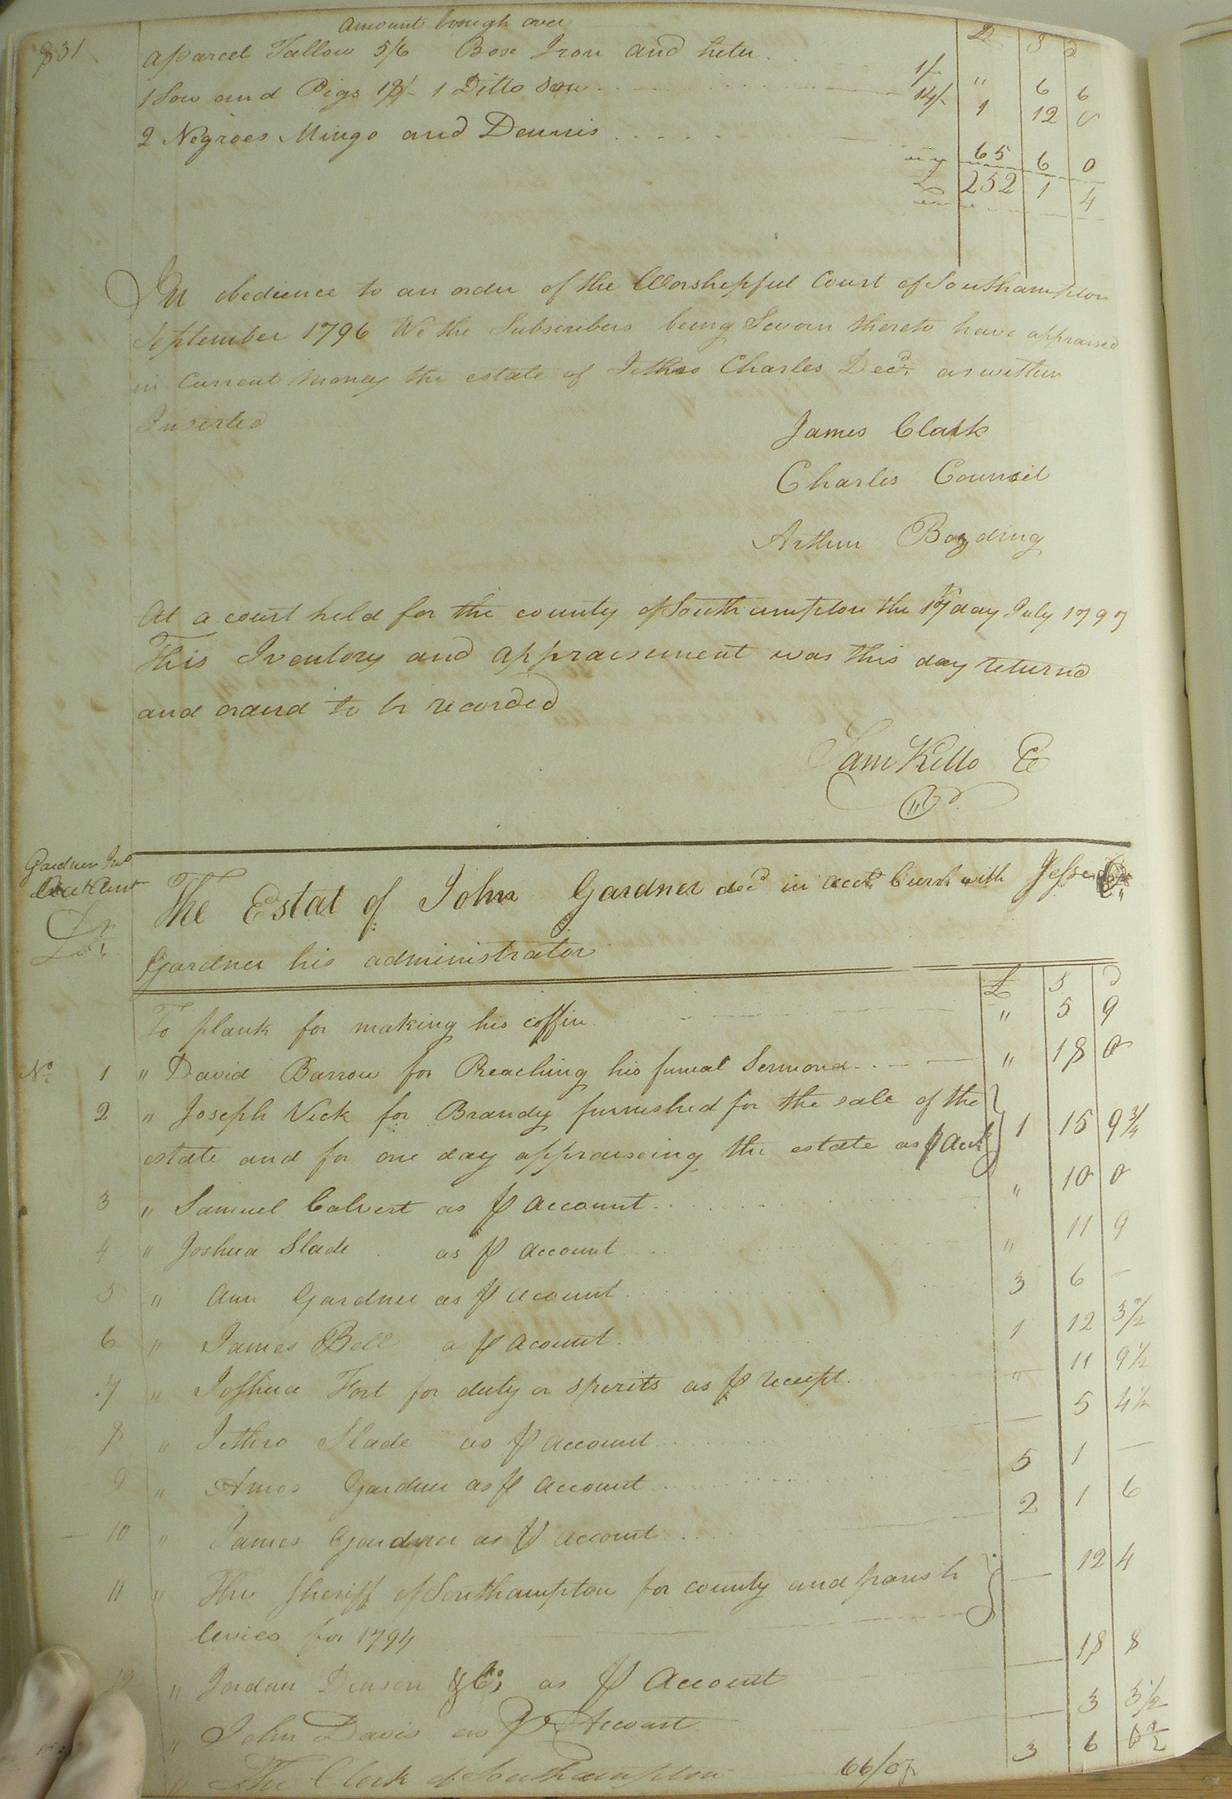 831
Amount brough over
£ S d
Aparcel Tallow 5/6 Box Iron and heter 1/ " 6 6
1 Sow and Pigs 18/ 1 Ditto Sow 14/ 1 12 0
2 Negroes Mingo and Dennis 65 6 0
£ 252 1 4
In obedience to an order of the Worshepful Court of Southampton
September 1796 We the Subscribers being Sworn thereto have appraised
in Current Money the estate of Jethro Charles Decd. as within
Inserted
James Clark
Charles Council
Arthur Boyding
At a court held for the county of Southampton the 17 day July 1797
This Iventory and appraisement was this day returnd
and ordered to be recorded
Sam Kello CC
Gardner Jno
Acct Curt
Dr
The Estat of John Gardner decd in acct. Curt. with Jesse
Gardner his administrator
£ S d
To plank for making his coffin " 5 9
No. 1 " David Barrow for Preaching his funal Sermond " 18 0
2 " Joseph Vick for Brandy furnished for the sale of the
estate and for one day appraiseing the estate as p Acct 1 15 9 3/4
3 " Samuel Calvert as p Account " 10 0
4 " Joshua Slade as p Account " 11 9
5 " Ann Gardner as p Acount 3 6 —
6 " James Bell a p Acount 1 12 3 1/2
7 " Joshua Fort for duty on spirits as p receipt " 11 9 1/2
8 " Jethro Slade as p Account — 5 4 1/2
9 " Amos Gardner as p Account 5 1 —
10 " James Gardner as p Account 2 1 6
11 " The Sheriff of Southampton for county and parish
levies for 1794 — 12 4
12 " Jordan Denson & Co; as p Account — 18 8
" John Davis as p Account — 3 3 1/2
" The Clerk of Southampton 3 6 6 1/2